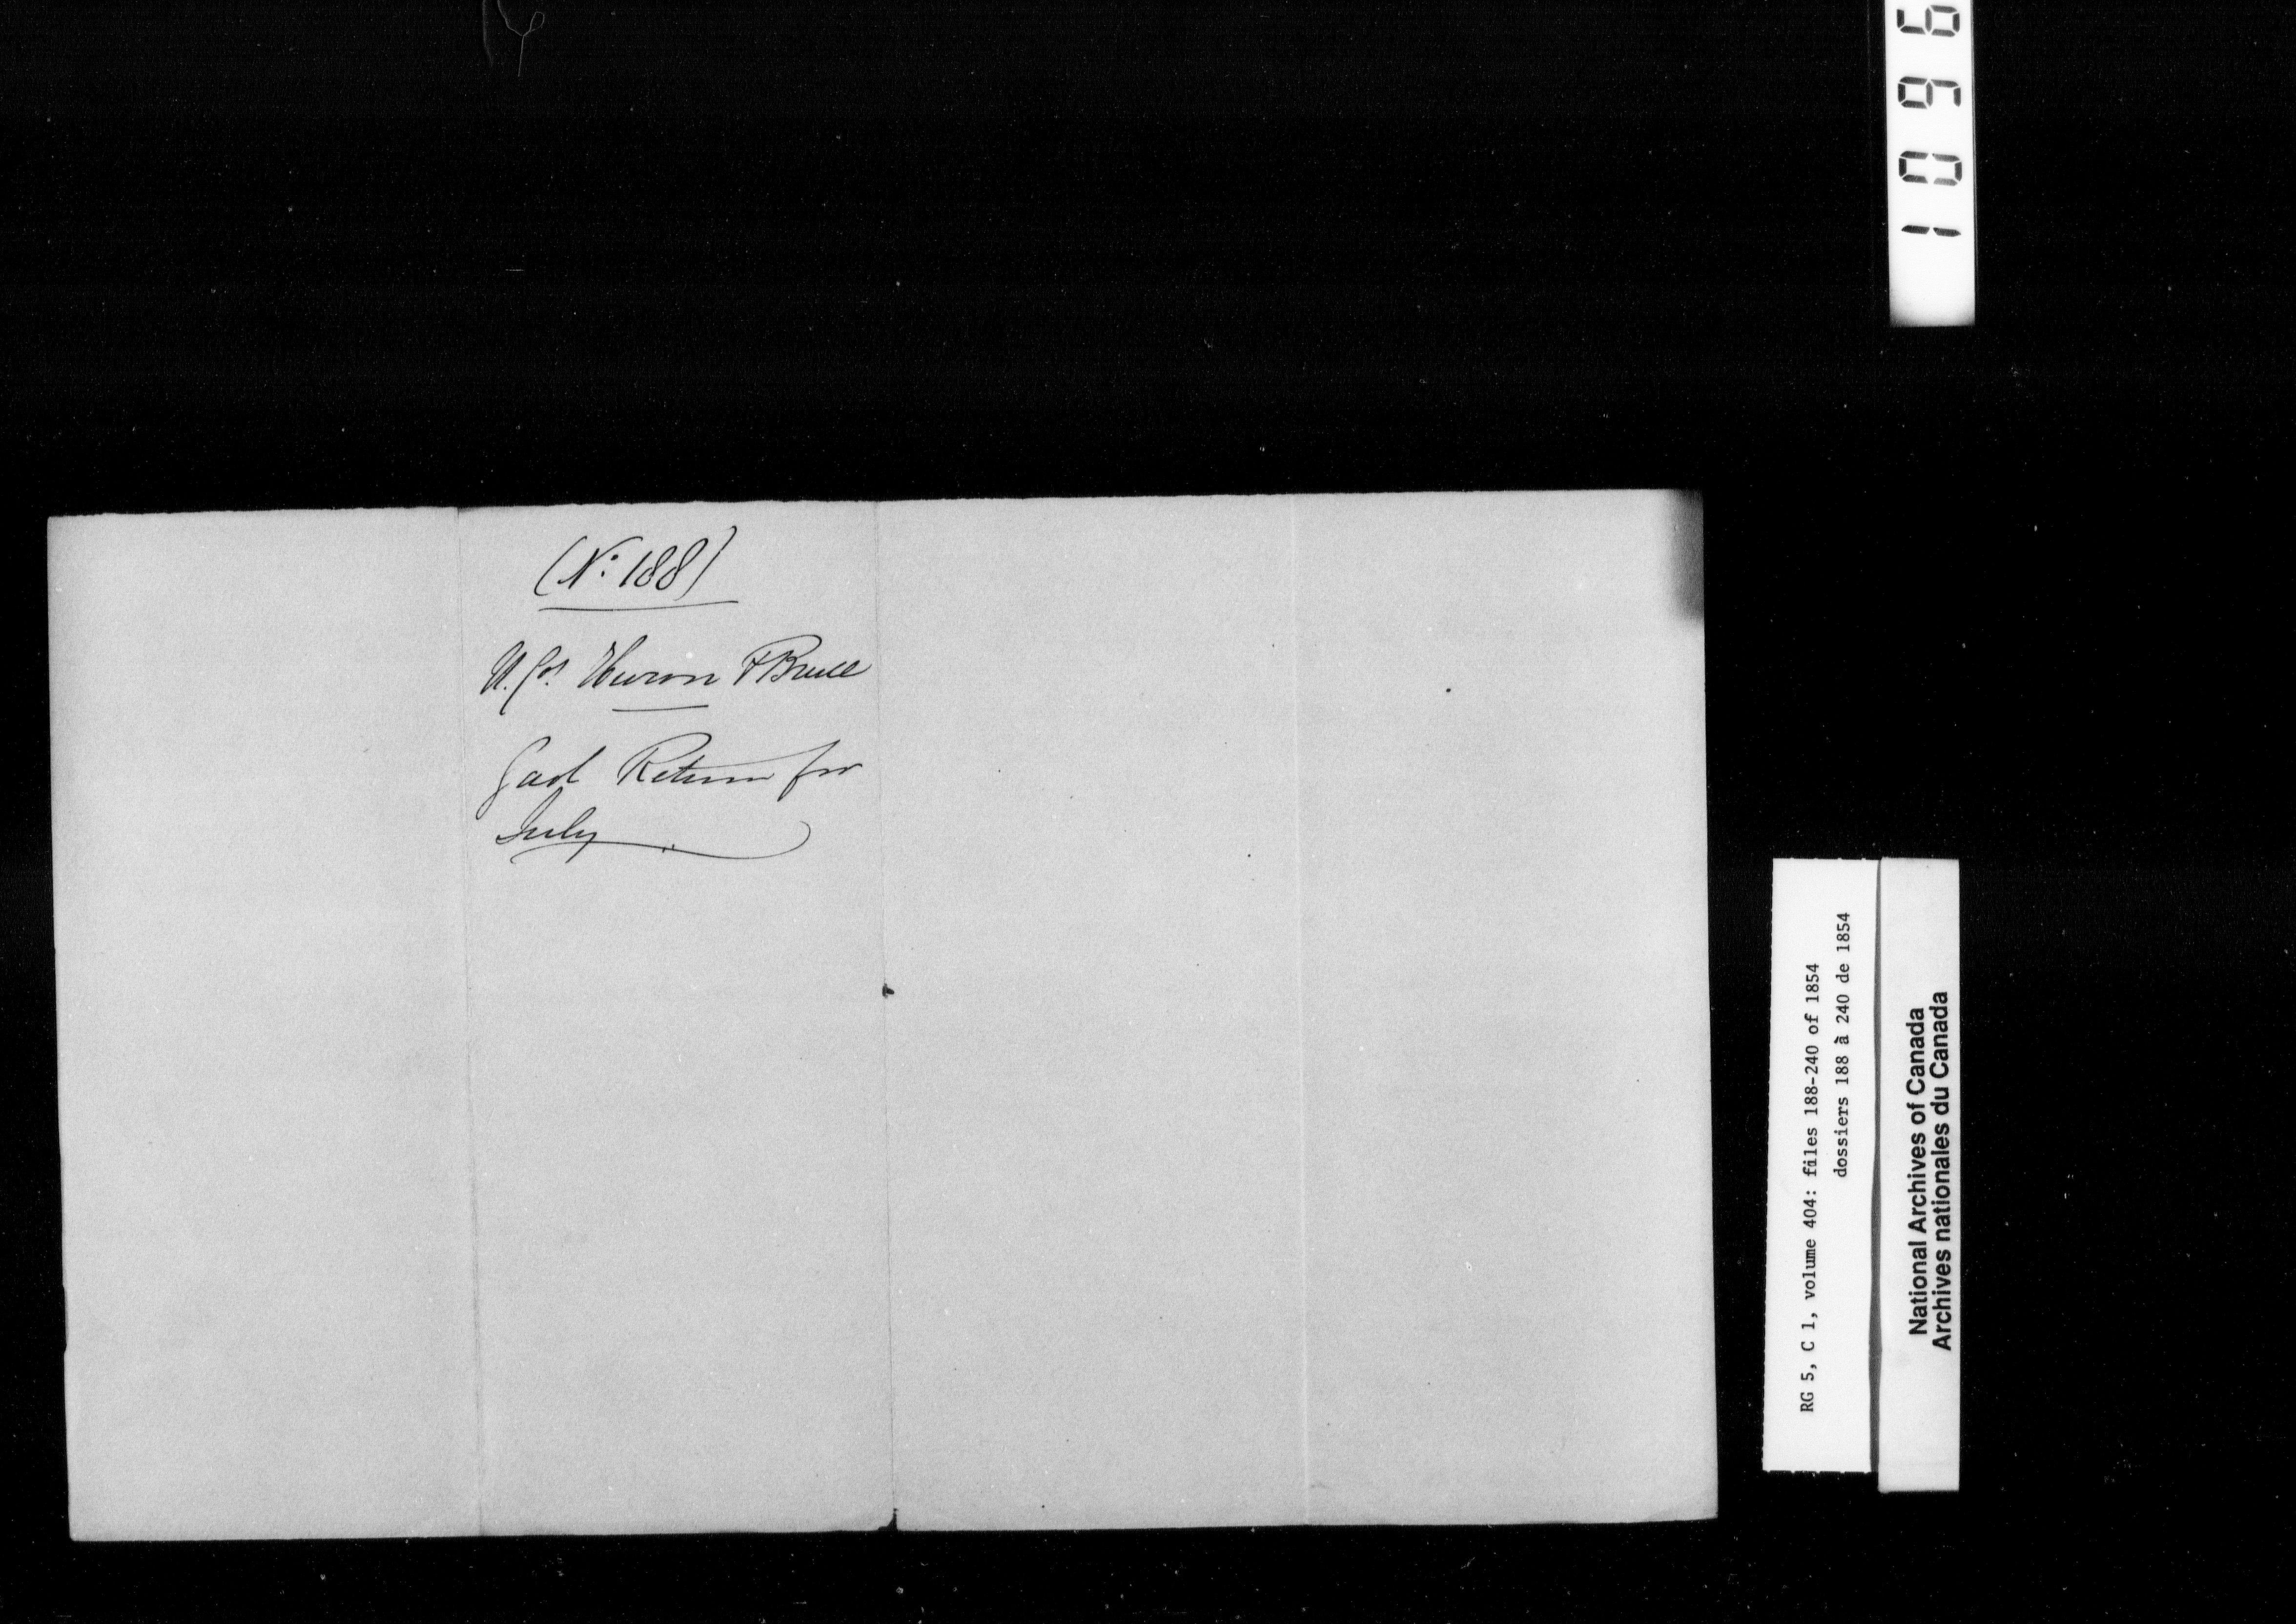 (No: 188)
U. Cos. Huron & Bruce
Gaol Return for
July
1096
RG 5, C 1, volume 404: files 188-240 of 1854
dossiers 188 à 240 de 1854
National Archives of Canada
Archives nationales du Canada